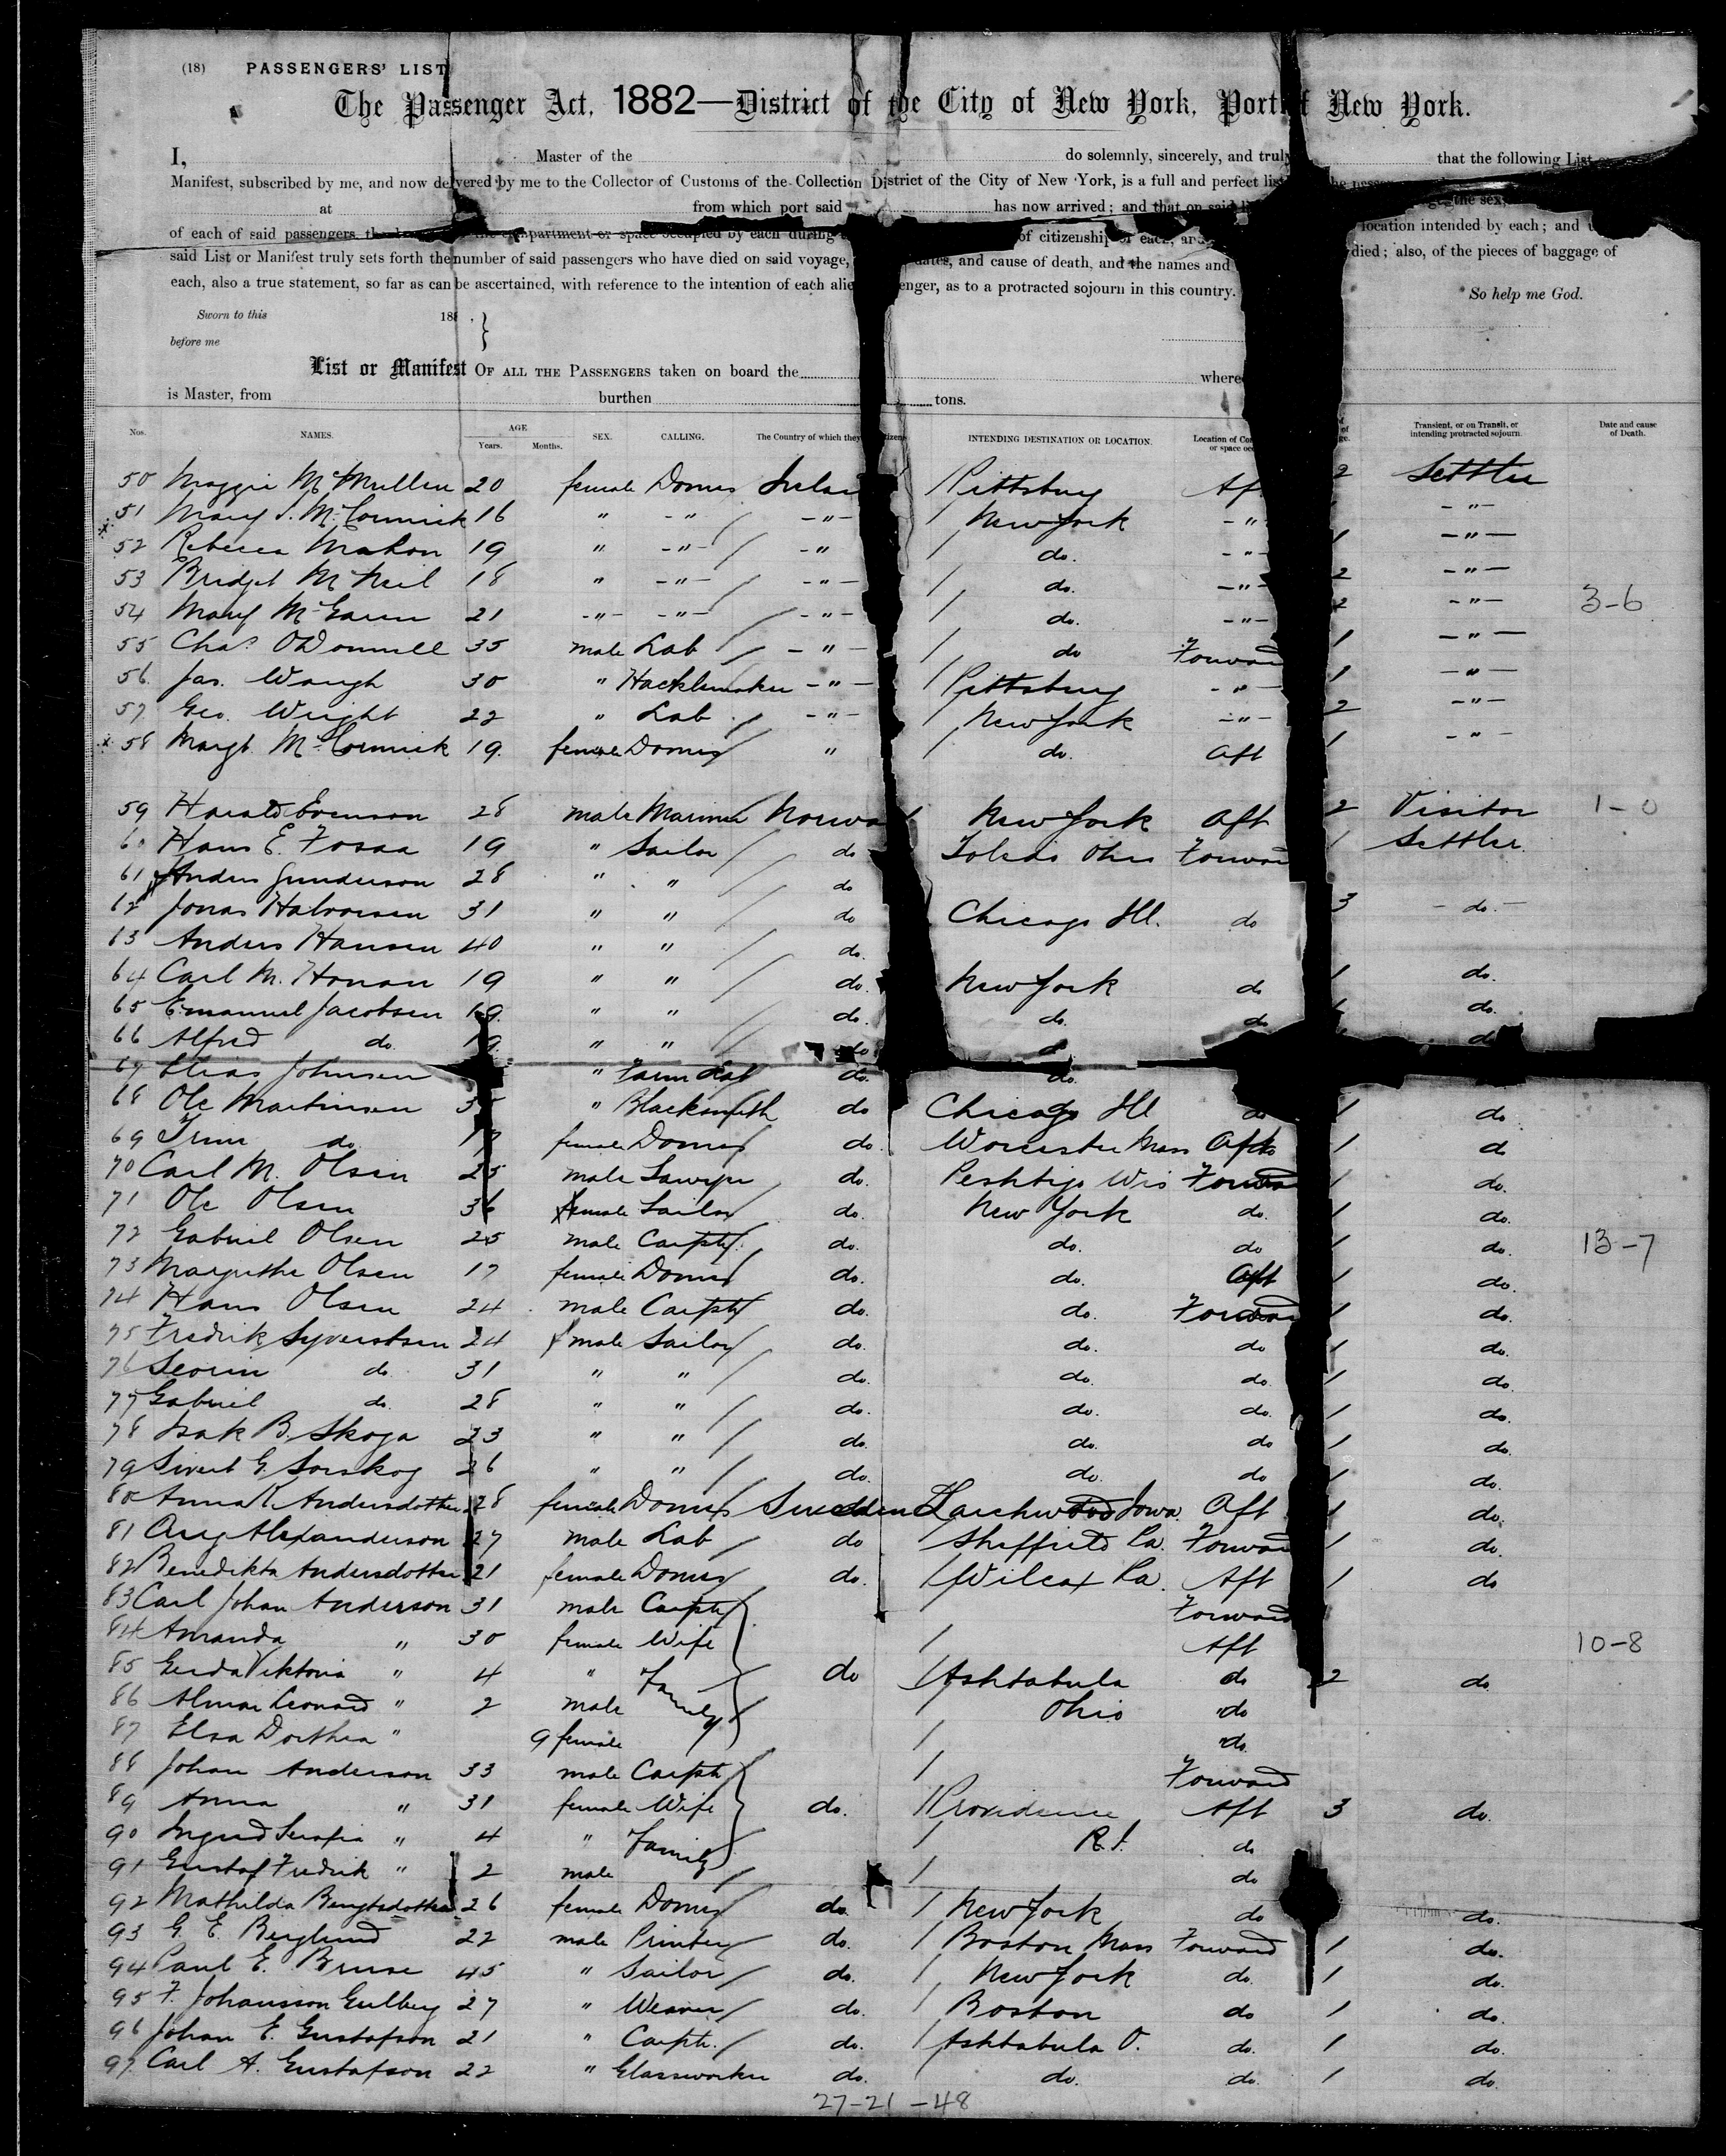 (18) PASSENGERS' LIST
The Passenger Act, 1882—District of the City of New York, Port of New York.
I, Master of the do solemnly, sincerely, and truly that the following List
Manifest, subscribed by me, and now delivered by me to the Collector of Customs of the Collection District of the City of New York, is a full and perfect list
at from which port said has now arrived; and that on said the sex,
of each of said passengers compartment or space occupied by each during of citizenship of each, location intended by each; and
said List or Manifest truly sets forth the number of said passengers who have died on said voyage, dates, and cause of death, and the names and died; also, of the pieces of baggage of
each, also a true statement, so far as can be ascertained, with reference to the intention of each alien enger, as to a protracted sojourn in this country. So help me God.
Sworn to this 188 ,
before me
List or Manifest OF ALL THE PASSENGERS taken on board the where
is Master, from burthen tons.
Nos. NAMES. AGE Years. Months. SEX. CALLING. The Country of which they citizens INTENDING DESTINATION OR LOCATION. Location of or space Transient, or on Transit, or intending protracted sojourn. Date and cause of Death.
50 Maggie McMullen 20 female Domes Irelan / Pittsburg Af 2 Settler
51 Mary J. McCormick 16 " -"- / -"- / New York -"- -"-
52 Rebecca Mahon 19 " -"- / -"- / do. -"- 1 -"-
53 Bridget McNeil 18 " -"- / -"- / do. -"- 2 -"-
54 Mary McGarin 21 -"- -"- / -"- / do. -"- 2 -"- 3-6
55 Chas. ODonnell 35 male Lab / -"- / do Forwar 1 -"-
56 Jas. Waugh 30 " Hacklemaker -"- / Pittsburg -"- 1 -"-
57 Geo. Wright 22 " Lab / -"- / New York -"- 2 -"-
58 Margt. McCormick 19. female Domes / " / do. Aft 1 -"-
59 Harald Evenson 28 male Mariner / Norwa / New York Aft 2 Visitor 1-0
60 Hans E. Fosaa 19 " Sailor / do Toledo Ohio Forwar 1 Settler.
61 Anders Gunderson 28 " " / do
62 Jonas Halvorsen 31 " " / do Chicago Ill. do 3 -do.-
63 Anders Hansen 40 " " / do.
64 Carl M. Honan 19 " " / do. New York do 1 do.
65 Emanuel Jacobsen 19. " " / do. do. do 1 do.
66 Alfred do 19. " " / do d. d
67 Elias Johnsen " Farm Lab do. do.
68 Ole Martinsen 3 " Blacksmith do Chicago Ill do 1 do
69 do 1 female Domes / do. Worcester Mass Aft 1 d
70 Carl M. Olsen 25 male Sawyer / do. Peshtigo Wis Forwa 1 do.
71 Ole Olsen 36 male Sailor / do. New York do. 1 do.
72 Gabriel Olsen 25 male Carptr / do. do. do 1 do. 13-7
73 Margrethe Olsen 17 female Domes / do. do. Aft 1 do.
74 Hans Olsen 24 male Carptr / do. do. Forwar 1 do.
75 Fredrik Syvertsen 24 male Sailor / do. do. do 1 do.
76 Seorin do. 31 " " / do. do. do 1 do.
77 Gabriel do. 28 " " / do. do. do. 1 do.
78 Isak B. Skoga 23 " " / do. do. do 1 do.
79 Sivert G. Sorskog 26 " " / do. do. do 1 do.
80 Anna K. Andersdotter 28 female Domes / Sweden Larchwood Iowa. Aft 1 do.
81 Aug Alexanderson 27 male Lab / do / Sheffield Pa. Forwar 1 do.
82 Benedikta Andersdotter 21 female Domes / do. / Wilcox Pa. Aft 1 do
83 Carl Johan Anderson 31 male Carptr Forward
84 Amanda " 30 female Wife / Aft 10-8
85 Gerda Viktoria " 4 " Family do / Ashtabula do 2 do
86 Almar Leonard " 2 male / Ohio do
87 Elsa Dorthea " 9 female / do.
88 Johan Anderson 33 male Carptr / Forward
89 Anna " 31 female Wife do. / Providence Aft 3 do.
90 Ingrid Serafia " 4 " Family / R.I. do
91 Gustaf Fredrik " 2 male / / do
92 Mathilda Bengtsdotter 26 female Domes / do. / New York do do.
93 G. E. Berglund 22 male Printer / do. / Boston Mass Forward 1 do.
94 Paul E. Bruse 45 " Sailor / do. / New York do. 1 do.
95 F. Johansson Gulberg 27 " Weaver / do. / Boston do 1 do.
96 Johan E. Gustafson 21 " Carptr. / do. / Ashtabula O. do. 1 do.
97. Carl A. Gustafson 22 " Glassworker do. / do. do. 1 do.
27-21-48